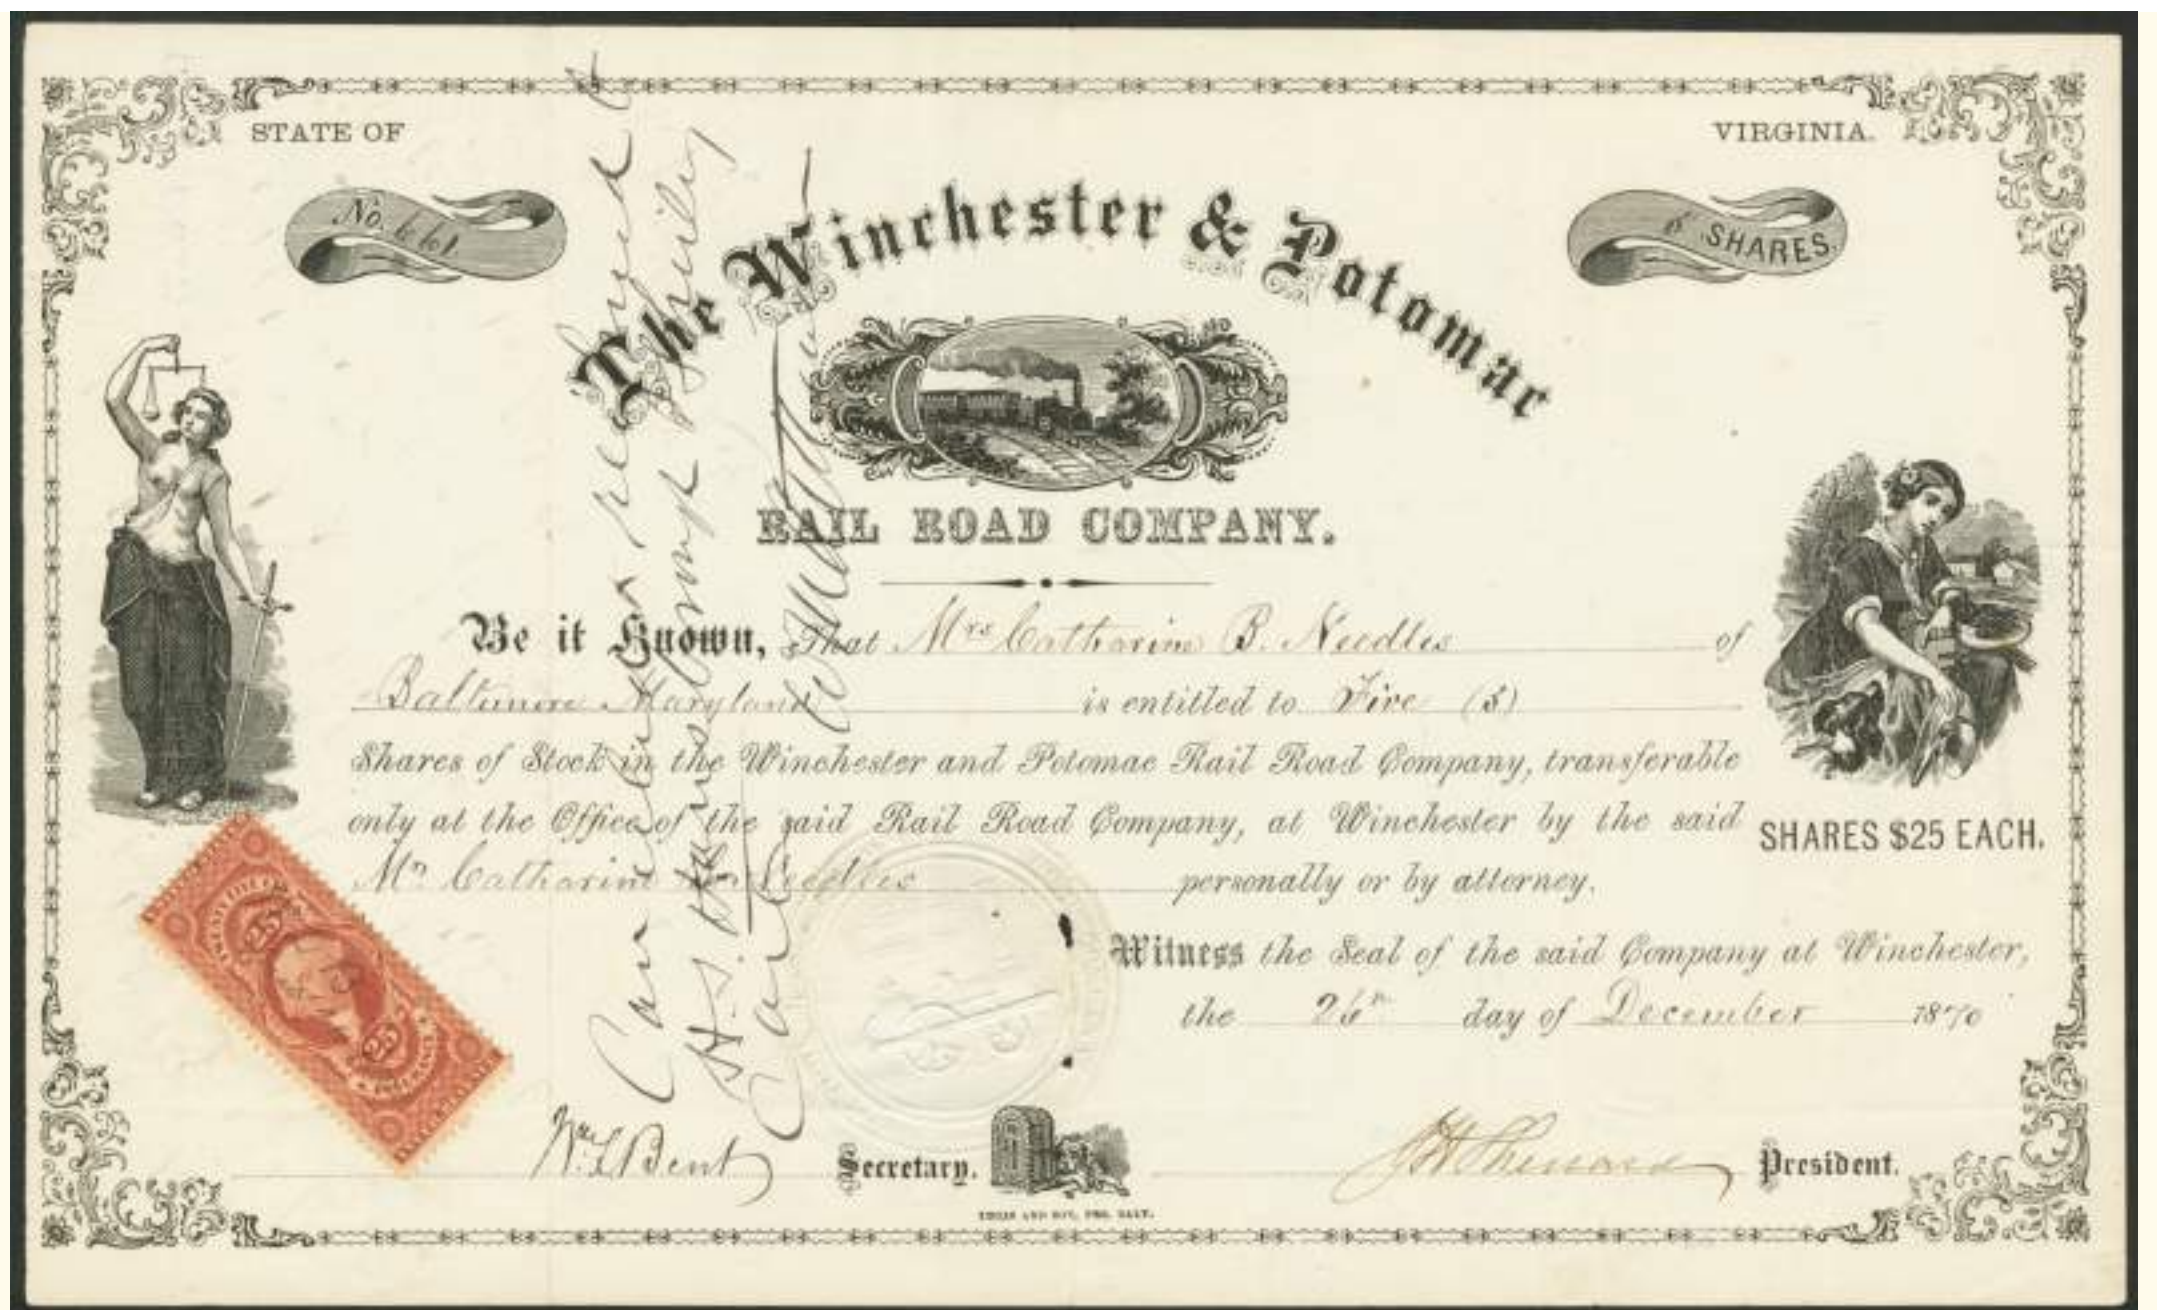 STATE OF VIRGINIA.
No. 661
5 SHARES.
The Winchester & Potomac
RAIL ROAD COMPANY.
Be it Known, That Mrs Catharine B. Needles of
Baltimore Maryland is entitled to Five (5)
Shares of Stock in the Winchester and Potomac Rail Road Company, transferable
only at the Office of the said Rail Road Company, at Winchester by the said
Mrs Catharine B. Needles personally or by attorney.
SHARES $25 EACH.
Witness the Seal of the said Company at Winchester,
the 26th day of December 1870
Wm L Bent Secretary.
President.
25
25